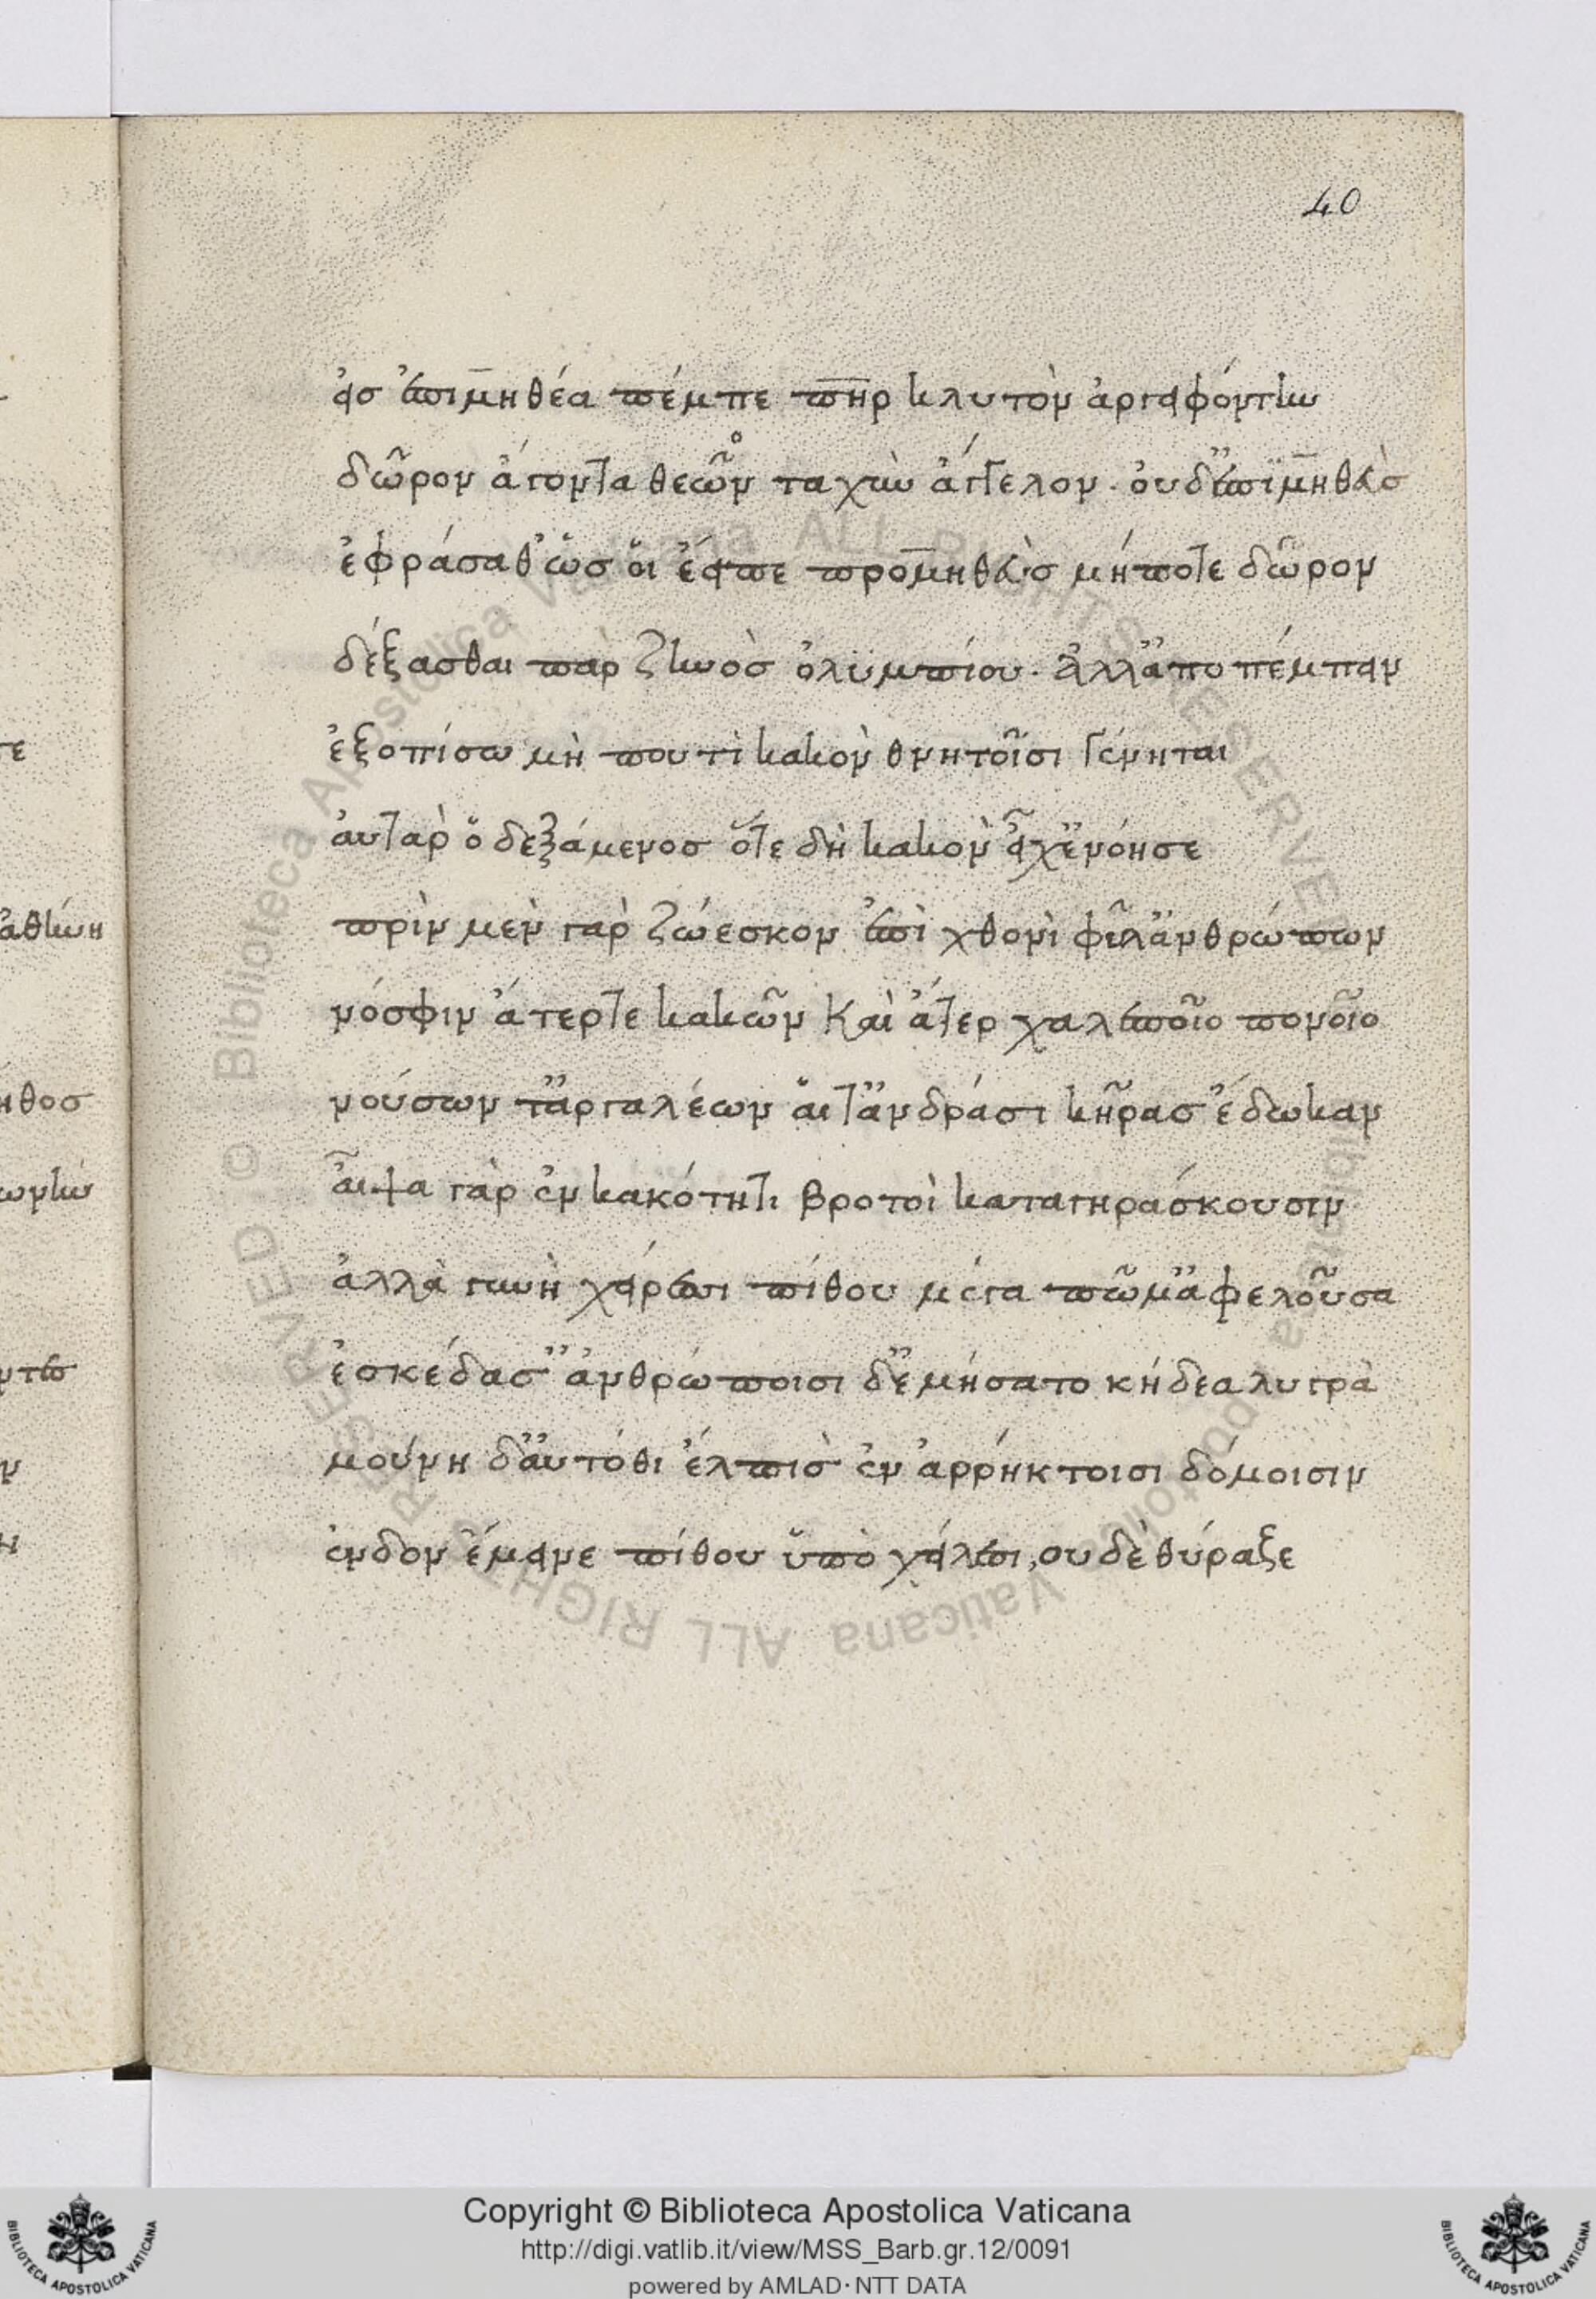 40
εἰς ἐπιμηθέα πέμπε πηρ κλυτὸν ἀργειφόντην
δῶρον ἄγοντα θεῶν ταχὺν ἄγγελον. οὐδ' ἐπιμηθεὺς
ἐφράσαθ' ὥς οἱ ἔειπε προμηθεὺς μήποτε δῶρον
δέξασθαι παρ ζηνὸς ὀλυμπίου. ἀλλ' ἀποπέμπειν
ἐξοπίσω μή που τὶ κακὸν θνητοῖσι γένηται
αὐτὰρ ὃ δεξάμενος ὅτε δὴ κακὸν εἶχ' ἐνόησε
πρὶν μὲν γὰρ ζώεσκον ἐπὶ χθονὶ φῦλ' ἀνθρώπων
νόσφιν ἄτερτε κακῶν καὶ ἄτερ χαλεποῖο πονοῖο
νούσων τ' ἀργαλέων αἵτ' ἀνδράσι κῆρας ἔδωκαν
αἶψα γὰρ ἐν κακότητι βροτοὶ καταγηράσκουσιν
ἀλλὰ γυνὴ χείρεσι πίθου μέγα πῶμ' ἀφελοῦσα
ἐσκέδασ' ἀνθρώποισι δ' ἐμήσατο κήδεα λυγρὰ
μούνη δ' αὐτόθι ἔλπις ἐν ἀρρήκτοισι δόμοισιν
ἔνδον ἔμεινε πίθου ὑπὸ χείλεσι, οὐδὲ θύραζε
αθήνη
ηθος
Copyright © Biblioteca Apostolica Vaticana
http://digi.vatlib.it/view/MSS_Barb.gr.12/0091
powered by AMLAD·NTT DATA